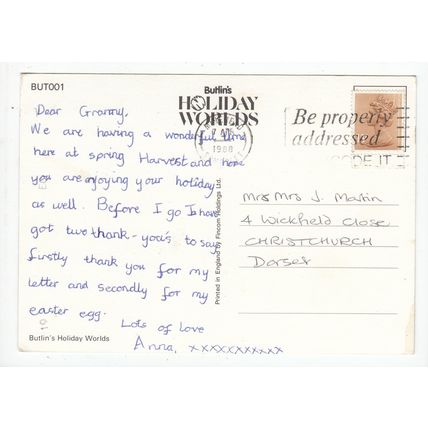 BUT001
Butlin's
HOLIDAY
WORLDS
Be properly
addressed
CODE IT
1988
Dear Granny,
We are having a wonderful time
here at spring Harvest and hope
you are enjoying your holiday
as well. Before I go I have
got two thank-you's to say
firstly thank you for my
letter and secondly for my
easter egg.
Lots of love
Anna, xxxxxxxxxxx
Mrs J. Martin
4 Wickfield Close
CHRISTCHURCH
Dorset
Printed in England by Fincom Holdings Ltd.
Butlin's Holiday Worlds